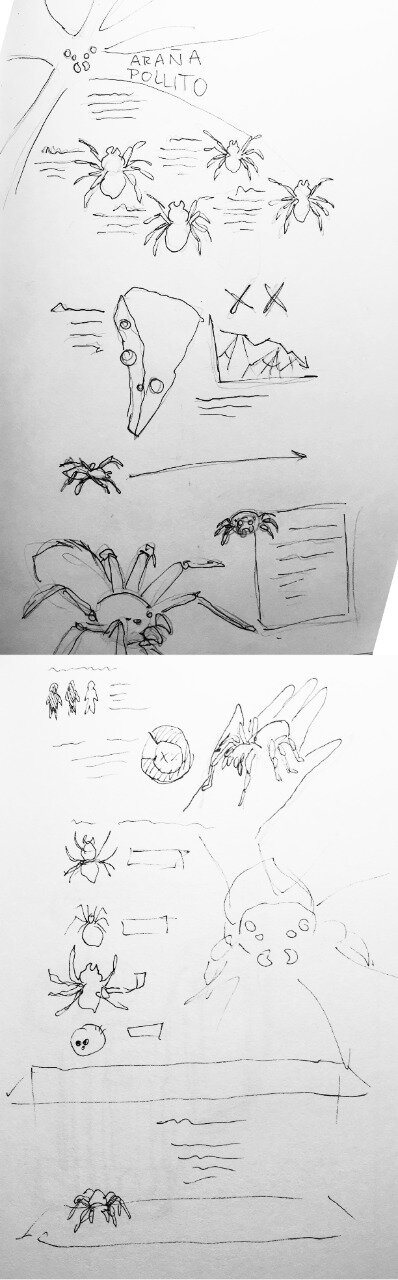 ARAÑA
POLLITO
XX
X